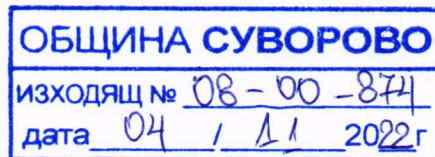 ОБЩИНА СУВОРОВО
ИЗХОДЯЩ № 08-00-874
дата 04 / 11 2022г